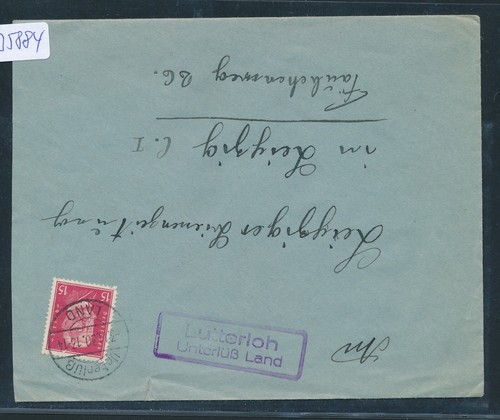 5884
An
Leipziger Bienenzeitung
in Leipzig C. 1
Täubchenweg 26.
15 15
Unterlüß
LAND
Lutterloh
Unterlüß Land